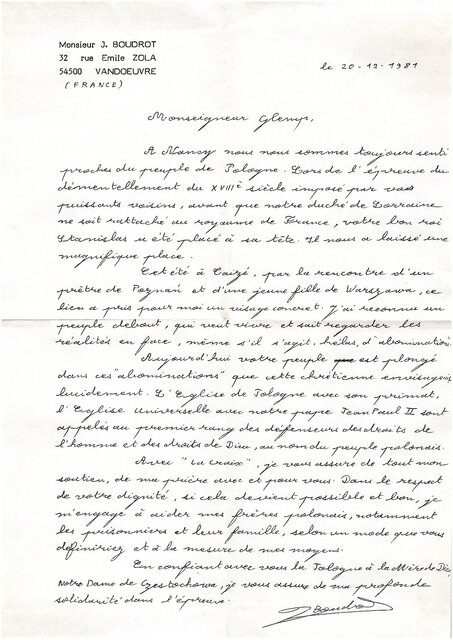 Monsieur J. BOUDROT
32 rue Emile ZOLA
54500 VANDOEUVRE
(FRANCE)
le 20-12-1981
Monseigneur Glemp,
A Nancy nous nous sommes toujours senti
proches du peuple de Pologne. Lors de l'épreuve du
démentellement du XVIIIè siècle imposé par vos
puissants voisins, avant que notre duché de Lorraine
ne soit rattaché au royaume de France, votre bon roi
Stanislas a été placé à sa tête. Il nous a laissé une
magnifique place.
Cet été à Taizé, par la rencontre d'un
prêtre de Poznań et d'une jeune fille de Warszawa, ce
lien a pris pour moi un visage concret. J'ai reconnu un
peuple debout, qui veut vivre et sait regarder les
réalités en face, même s'il s'agit, hélas, d'abominations.
Aujourd'hui votre peuple est plongé
dans ces "abominations" que cette chrétienne envisageait
lucidement. L'Eglise de Pologne avec son primat,
l'Eglise universelle avec notre pape Jean Paul II sont
appelés au premier rang des défenseurs des droits de
l'homme et des droits de Dieu, au nom du peuple polonais.
Avec "la croix", je vous assure de tout mon
soutien, de ma prière avec et pour vous. Dans le respect
de votre dignité, si cela devient possible et bon, je
m'engage à aider mes frères polonais, notamment
les prisonniers et leur famille, selon un mode que vous
définiriez et à la mesure de mes moyens.
En confiant avec vous la Pologne à la Mère de Dieu
Notre Dame de Czestochowa, je vous assure de ma profonde
solidarité dans l'épreuve.
JBoudrot